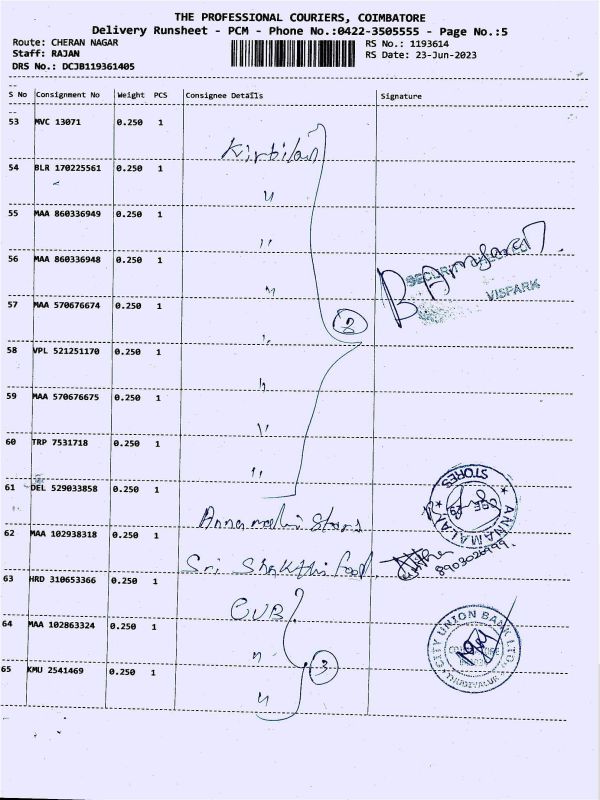 THE PROFESSIONAL COURIERS, COIMBATORE
Delivery Runsheet - PCM - Phone No.:0422-3505555 - Page No.:5
Route: CHERAN NAGAR RS No.: 1193614
Staff: RAJAN RS Date: 23-Jun-2023
DRS No.: DCJB119361405
S No Consignment No Weight PCS Consignee Details Signature
53 MVC 13071 0.250 1
54 BLR 170225561 0.250 1 "
55 MAA 860336949 0.250 1 "
56 MAA 860336948 0.250 1 "
SECURITY
VISPARK
57 MAA 570676674 0.250 1 "
2
58 VPL 521251170 0.250 1 "
59 MAA 570676675 0.250 1 "
60 TRP 7531718 0.250 1 "
61 DEL 529033858 0.250 1 Annamalai Stores
ANNAMALAI STORES
62 MAA 102938318 0.250 1 Sri Shakthi food
63 HRD 310653366 0.250 1 CUB
64 MAA 102863324 0.250 1 "
CITY UNION BANK LTD.
3
65 KMU 2541469 0.250 1 "